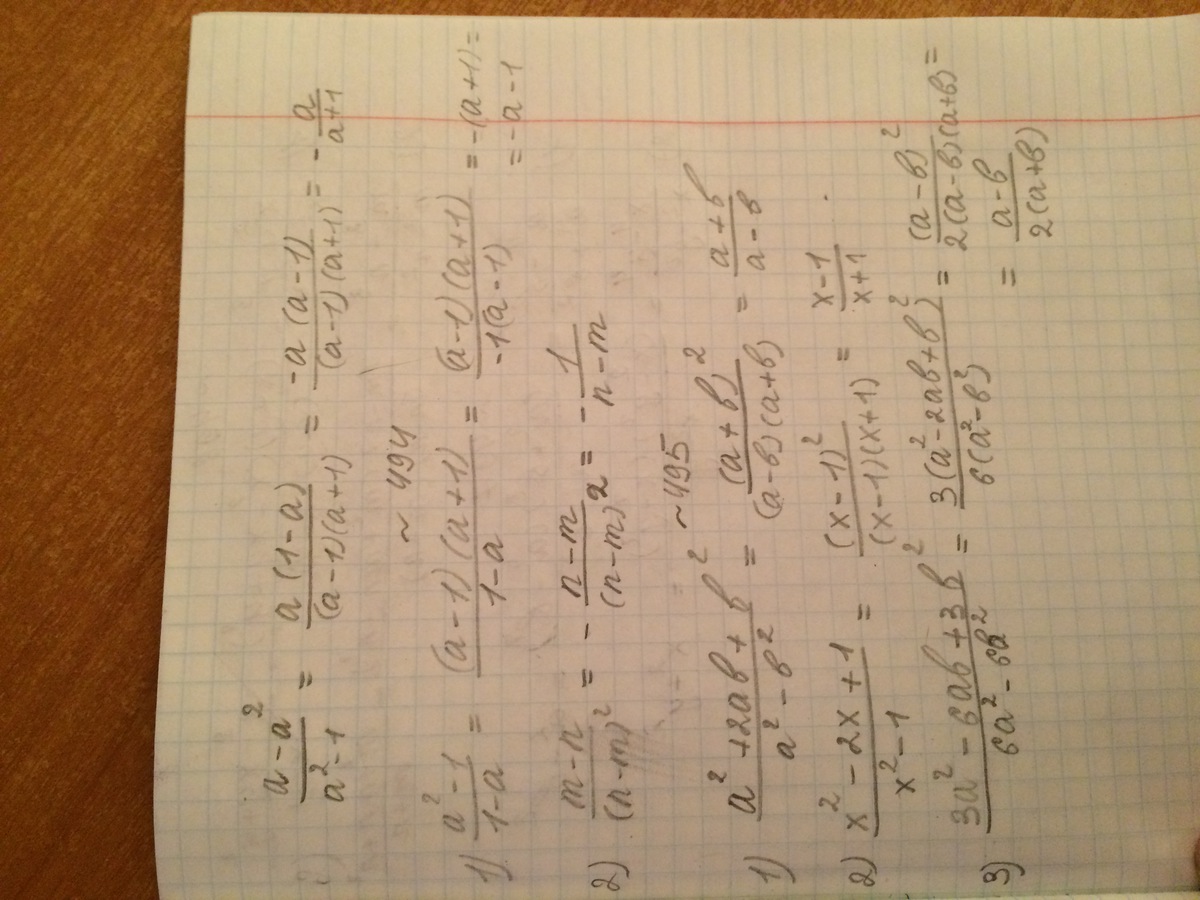 (a - a²)/(a² - 1) = (a(1-a))/((a-1)(a+1)) = (-a(a-1))/((a-1)(a+1)) = - a/(a+1)
~ 494
1) (a² - 1)/(1-a) = ((a-1)(a+1))/(1-a) = ((a-1)(a+1))/(-1(a-1)) = -(a+1) =
= -a-1
2) (m-n)/(n-m)² = - (n-m)/(n-m)² = - 1/(n-m)
~495
1) (a² + 2ab + b²)/(a² - b²) = (a+b)²/((a-b)(a+b)) = (a+b)/(a-b)
2) (x² - 2x + 1)/(x² - 1) = (x-1)²/((x-1)(x+1)) = (x-1)/(x+1) .
3) (3a² - 6ab + 3b²)/(6a² - 6b²) = (3(a² - 2ab + b²))/(6(a² - b²)) = (a-b)²/(2(a-b)(a+b)) =
= (a-b)/(2(a+b))